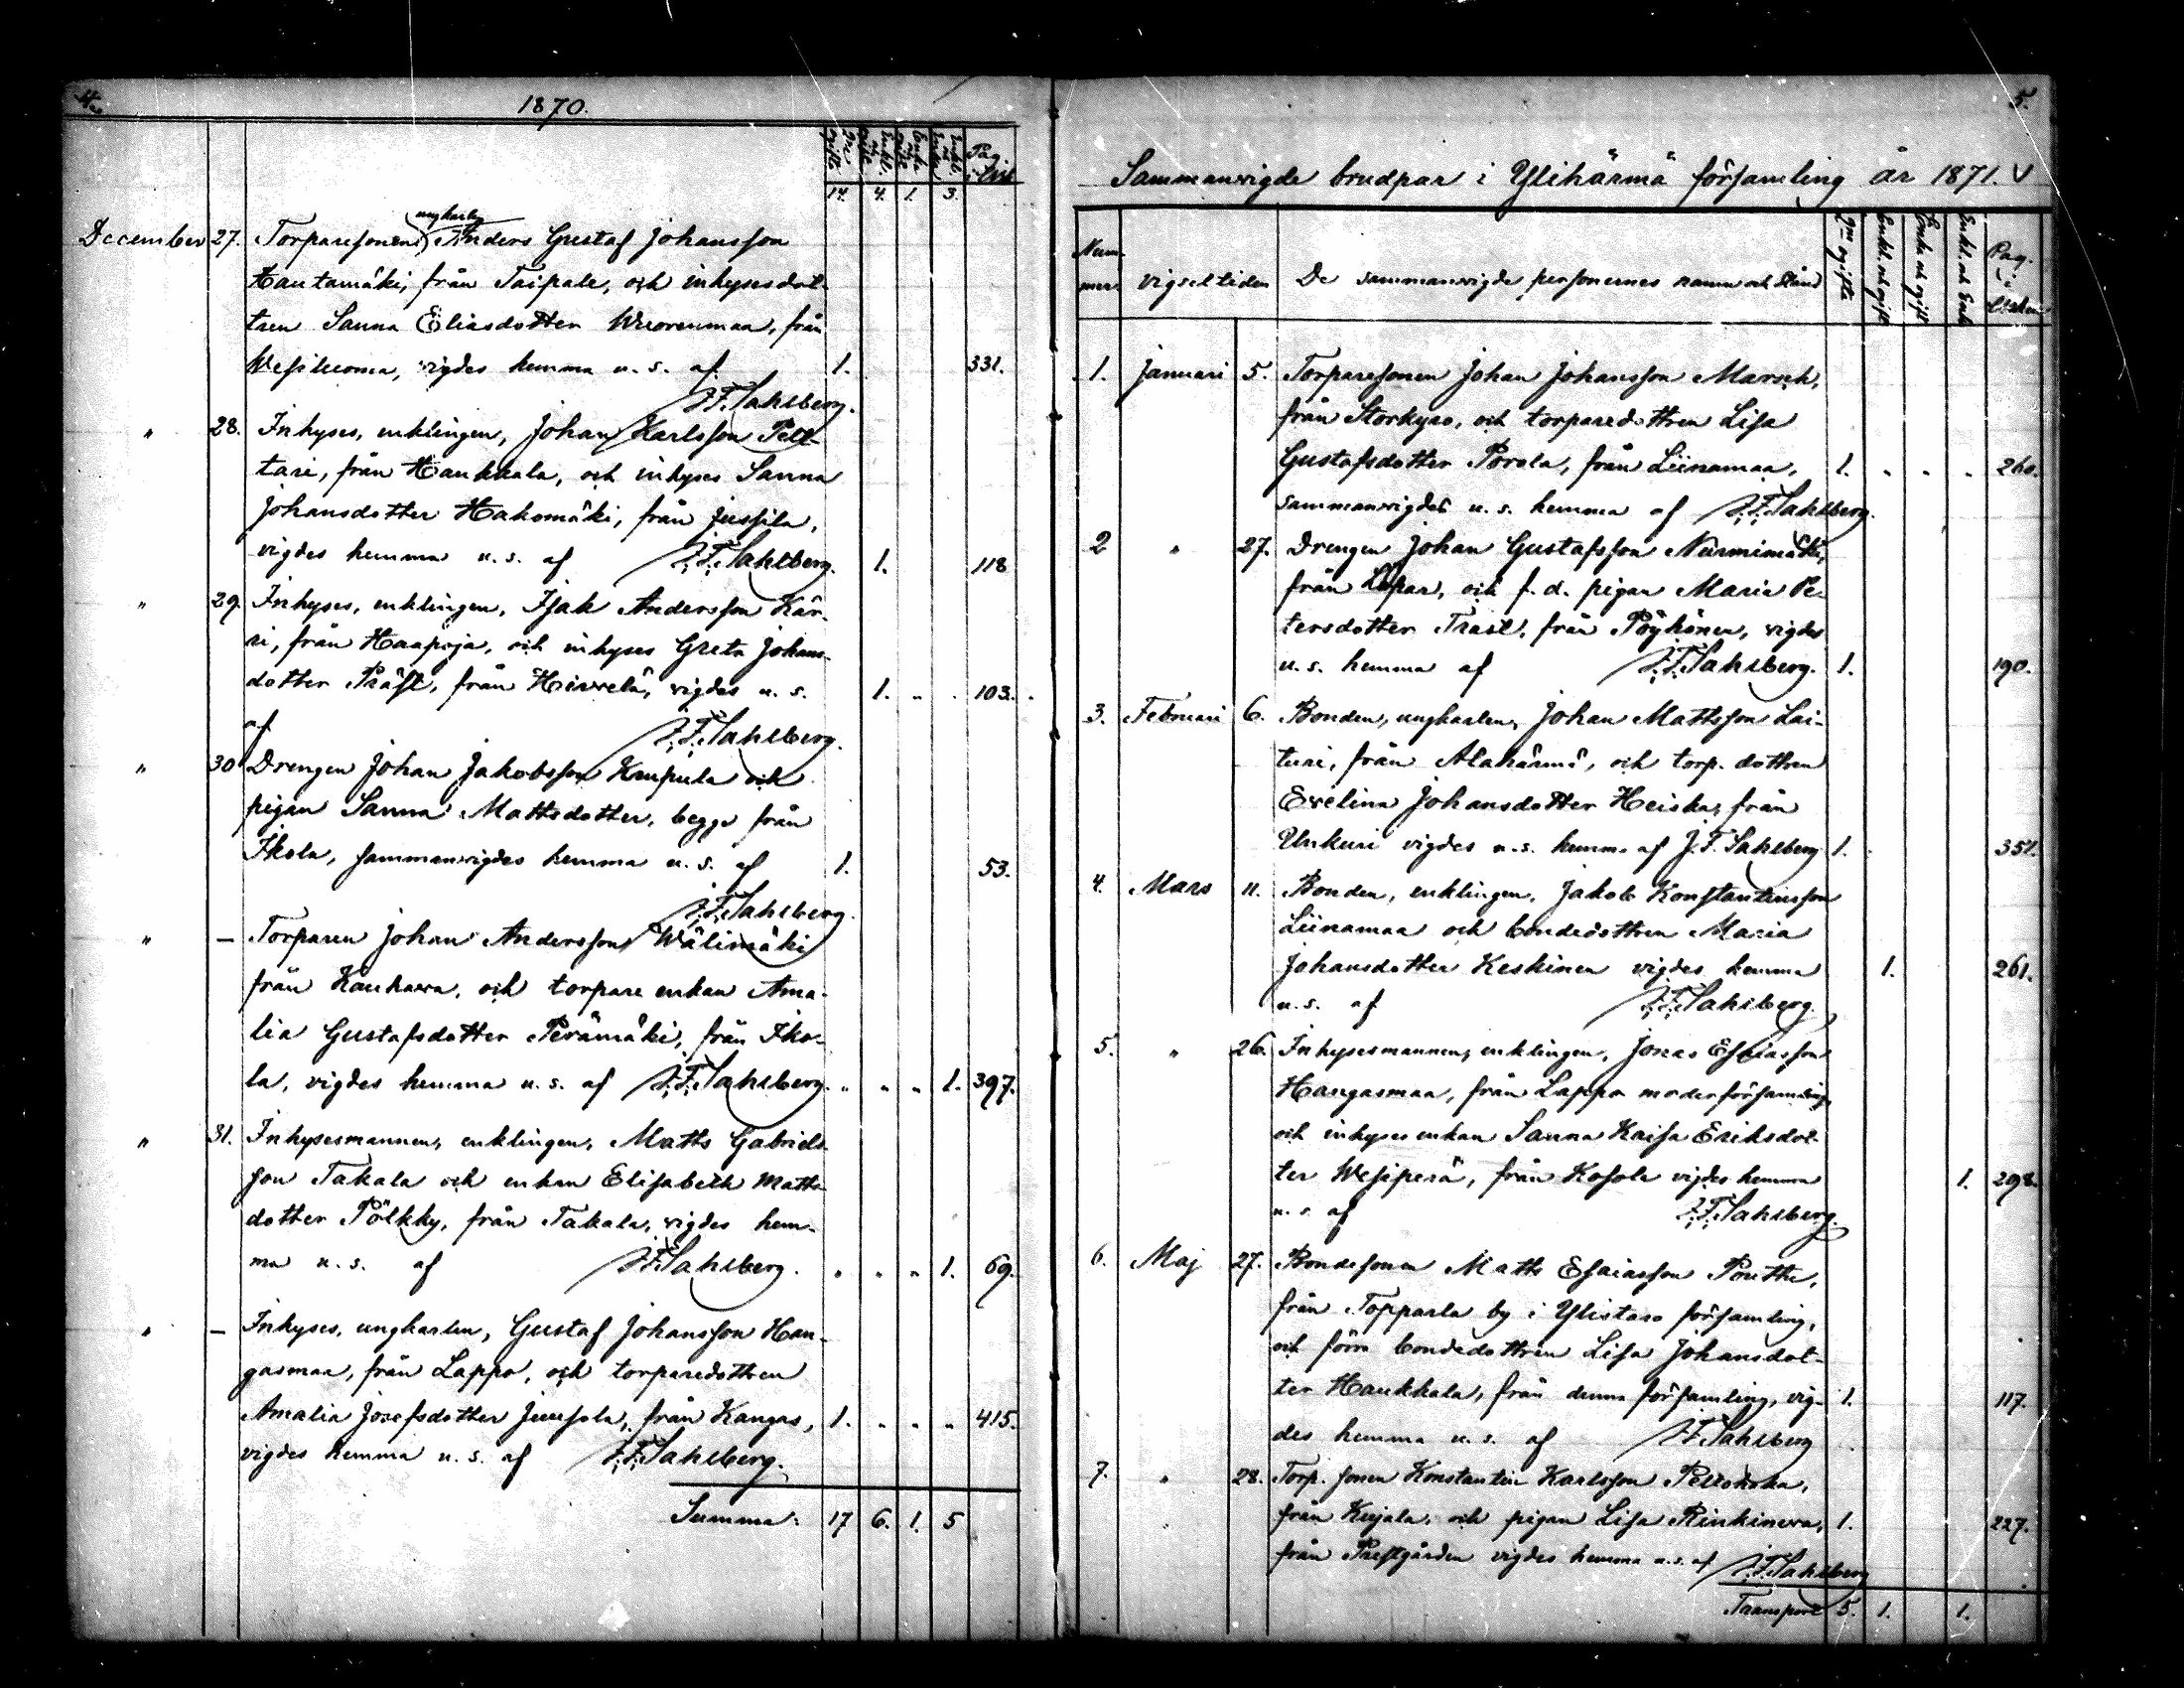 4.
1870.
2ne ogifte
Enkl. och ogift
Enka och ogift
Enkl. och Enka
Pag. i
14. 4. 1. 3.
December 27. Torparesonen, ungkarlen Anders Gustaf Johansson
Hautamäki, från Taipale, och inhysesdot-
tren Sanna Eliasdotter Wuorenmaa, från
Wesiluoma, vigdes hemma u. s. af 1. 331.
J. F. Sahlberg.
" 28. Inhyses, enklingen, Johan Karlsson Pelt-
tari, från Haukkala, och inhyses Sanna
Johansdotter Hakomäki, från Jussila,
vigdes hemma u. s. af J. F. Sahlberg. 1. 118
" 29. Inhyses, enklingen, Isak Andersson Kär-
ri, från Haapoja, och inhyses Greta Johans-
dotter Präst, från Hirvelä, vigdes u. s. 1. " . 103.
af J. F. Sahlberg.
" 30 Drengen Johan Jakobsson Krupula och
pigan Sanna Mattsdotter, begge från
Ikola, sammanvigdes hemma u. s. af 1. 53.
J. F. Sahlberg.
" — Torparen Johan Andersson Wälimäki
från Kauhava, och torpare enkan Ama-
lia Gustafsdotter Perämäki, från Iko-
la, vigdes hemma u. s. af J. F. Sahlberg. " " " 1. 397.
" 31. Inhysesmannen, enklingen, Matts Gabriels-
son Takala och enkan Elisabeth Matts-
dotter Pölkky, från Takala, vigdes hem-
ma u. s. af J. F. Sahlberg. " " " 1. 69.
" — Inhyses, ungkarlen, Gustaf Johansson Han-
gasmaa, från Lappo, och torparedottren
Amalia Josefsdotter Juusola, från Kangas, 1. " " " 415.
vigdes hemma u. s. af J. F. Sahlberg.
Summa: 17 6. 1. 5
5.
Sammanvigde brudpar i Ylihärmä församling år 1871. V
Num-
mer vigseltiden De sammanvigde personernes namn och stånd
2ne ogifte
Enkl. och ogift
Enka och ogift
Enkl. och Enka
Pag. i
1. Januari 5. Torparesonen Johan Johansson Marsch,
från Storkyro, och torparedottren Lisa
Gustafsdotter Porola, från Liinamaa, 1. " " " 260.
sammanvigdes u. s. hemma af J. F. Sahlberg.
2 " 27. Drengen Johan Gustafsson Nurmimäki,
från Lapua, och f. d. pigan Maria Pe-
tersdotter Trast, från Pöyhönen, vigdes
u. s. hemma af J. F. Sahlberg. 1. 190.
3. Februari 6. Bonden, ungkarlen, Johan Mattsson Lai-
turi, från Alahärmä, och torp. dottren
Evelina Johansdotter Heiska, från
Unkuri vigdes u. s. hemma af J. F. Sahlberg 1. 351.
4. Mars 11. Bonden, enklingen, Jakob Konstantinsson
Liinamaa och bondedottren Maria
Johansdotter Keskinen vigdes hemma 1. 261.
u. s. af J. F. Sahlberg.
5. " 26. Inhysesmannen, enklingen, Jonas Esaiasson
Hangasmaa, från Lappo moderförsamling,
och inhyses enkan Sanna Kaisa Eriksdot-
ter Wesiperä, från Kosola vigdes hemma 1. 298.
u. s. af J. F. Sahlberg.
6. Maj 27. Bondesonen Matts Esaiasson Poutte,
från Topparla by i Ylistaro församling,
och förre bondedottren Lisa Johansdot-
ter Haukkala, från denna församling, vig- 1. 117.
des hemma u. s. af J. F. Sahlberg
7. " 28. Torp. sonen Konstantin Karlsson Peltokoka,
från Kujala, och pigan Lisa Rinkineva, 1. 227.
från Prestgården vigdes hemma u. s. af J. F. Sahlberg
Transport 5. 1. 1.